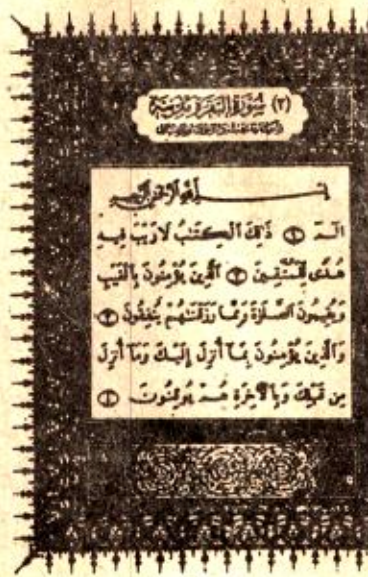 (٢) سُورَةُ البَقَرَةِ مَدَنِيَّة
بِسْمِ اللهِ الرَّحْمٰنِ الرَّحِيمِ
الٓمٓ ۝١ ذَٰلِكَ ٱلْكِتَٰبُ لَا رَيْبَ فِيهِ
هُدًى لِّلْمُتَّقِينَ ۝٢ ٱلَّذِينَ يُؤْمِنُونَ بِٱلْغَيْبِ
وَيُقِيمُونَ ٱلصَّلَوٰةَ وَمِمَّا رَزَقْنَٰهُمْ يُنفِقُونَ ۝٣
وَٱلَّذِينَ يُؤْمِنُونَ بِمَآ أُنزِلَ إِلَيْكَ وَمَآ أُنزِلَ
مِن قَبْلِكَ وَبِٱلْأٓخِرَةِ هُمْ يُوقِنُونَ ۝٤